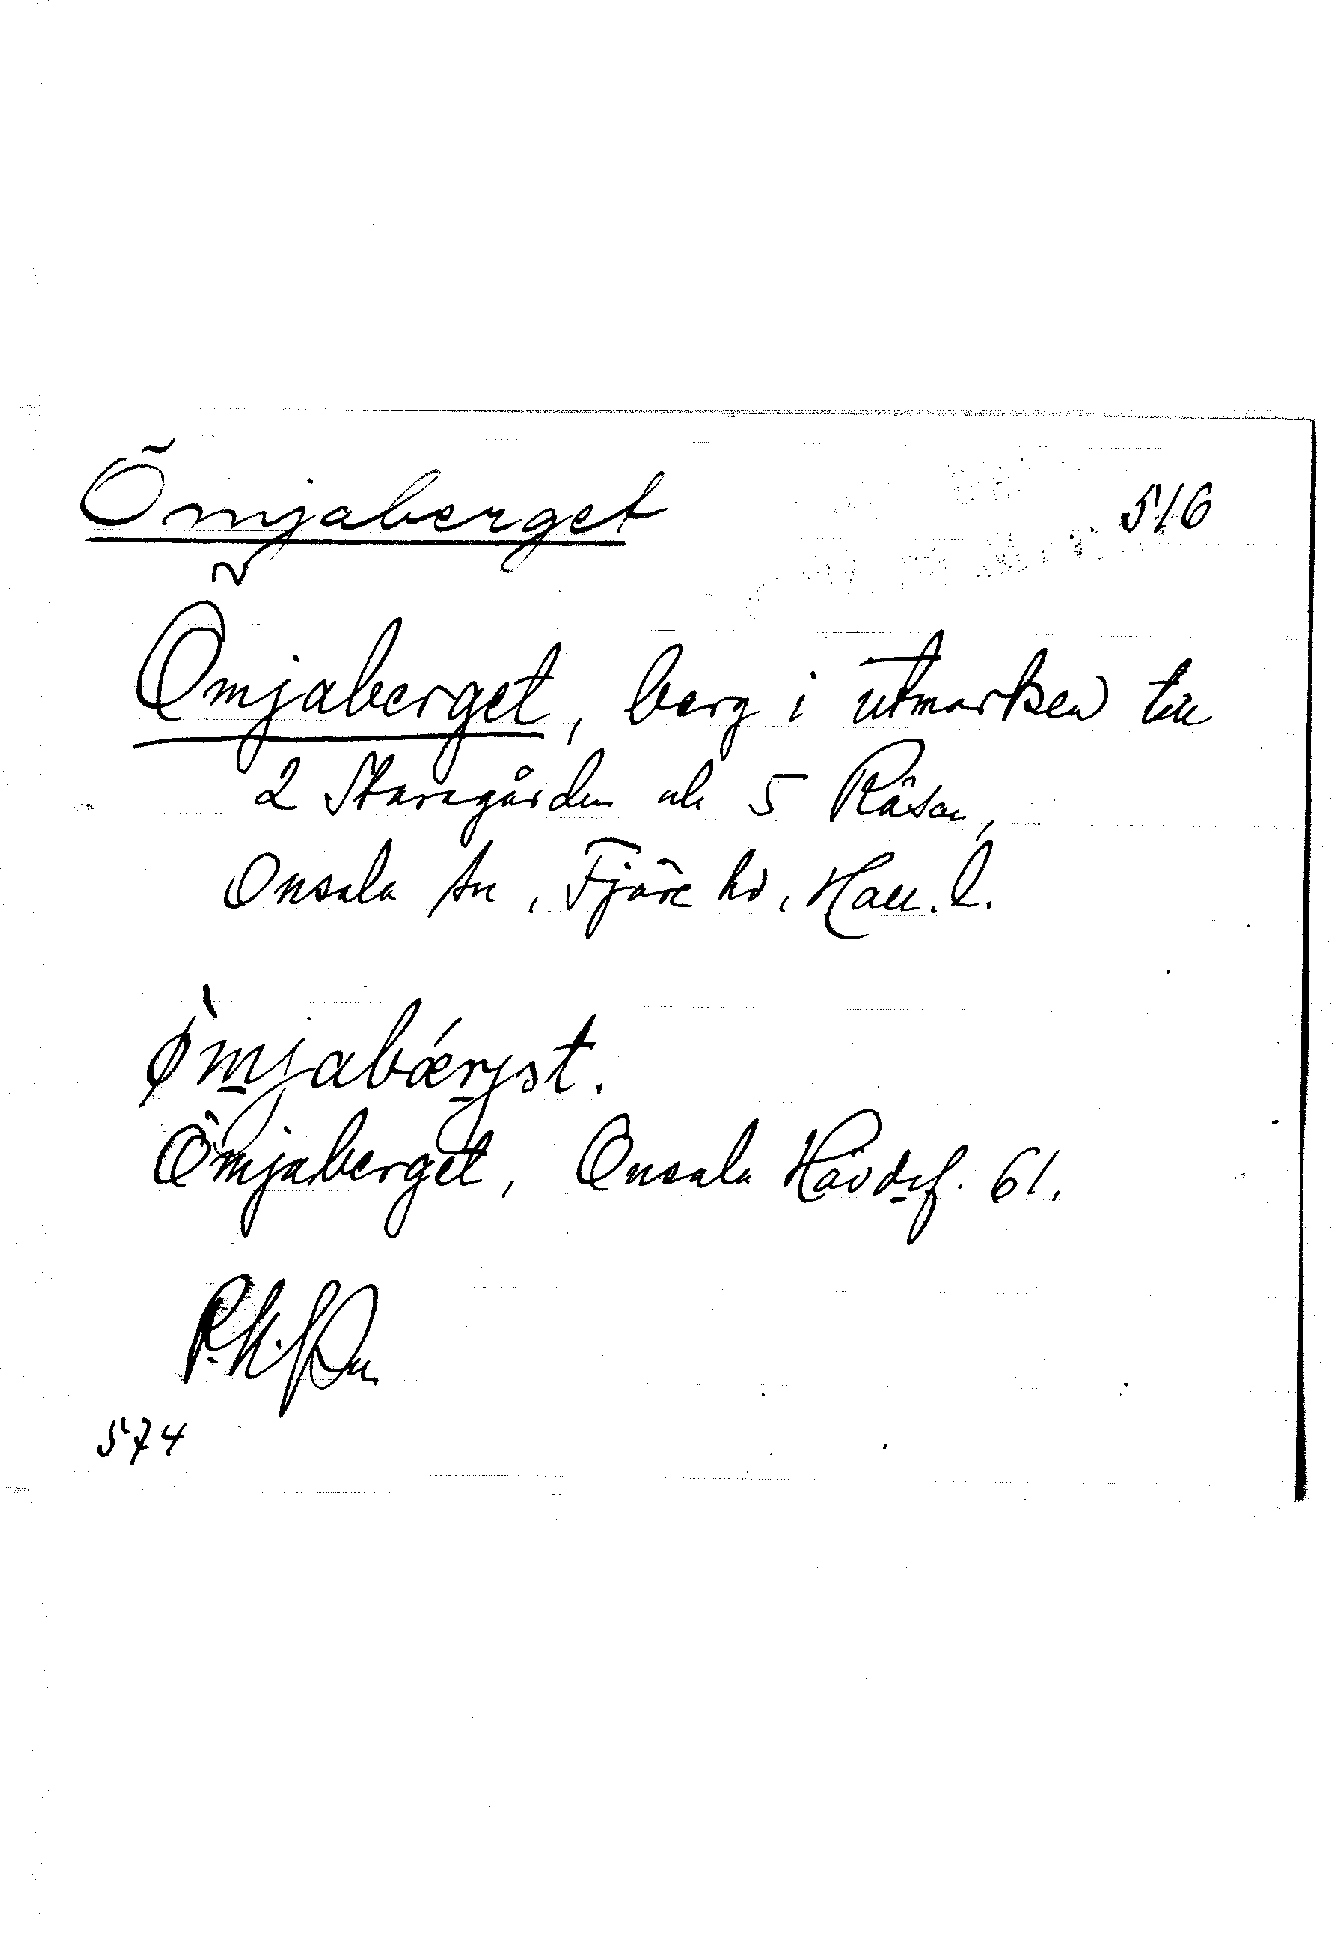 Ömjaberget 516
Ömjaberget, berg i utmarken till
2 Staragården och 5 Räsan,
Onsala sn, Fjäre hd, Hall. l.
ø̀mjabǽrjət.
Ömjaberget, Onsala Hävdef. 61.
574